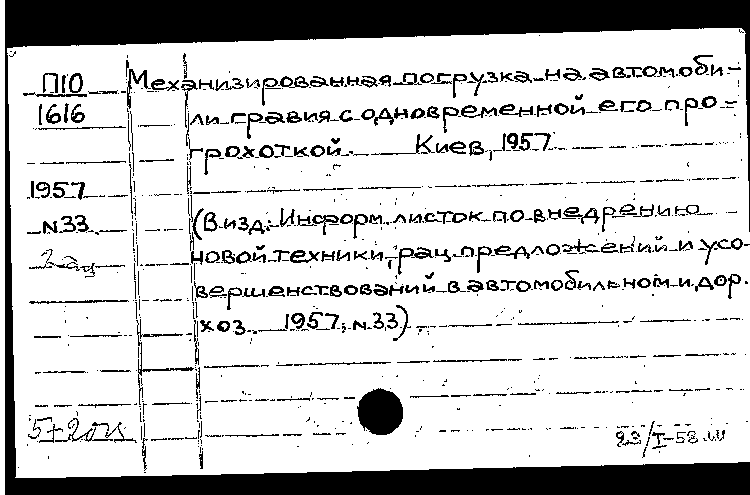 П10
1616
1957
N33
Механизированная погрузка на автомоби-
ли гравия с одновременной его про-
грохоткой. Киев, 1957
(В изд: Информ. листок по внедрению
новой техники, рац. предложений и усо-
вершенствований в автомобильном и дор.
хоз. 1957, N33)
23/I-58